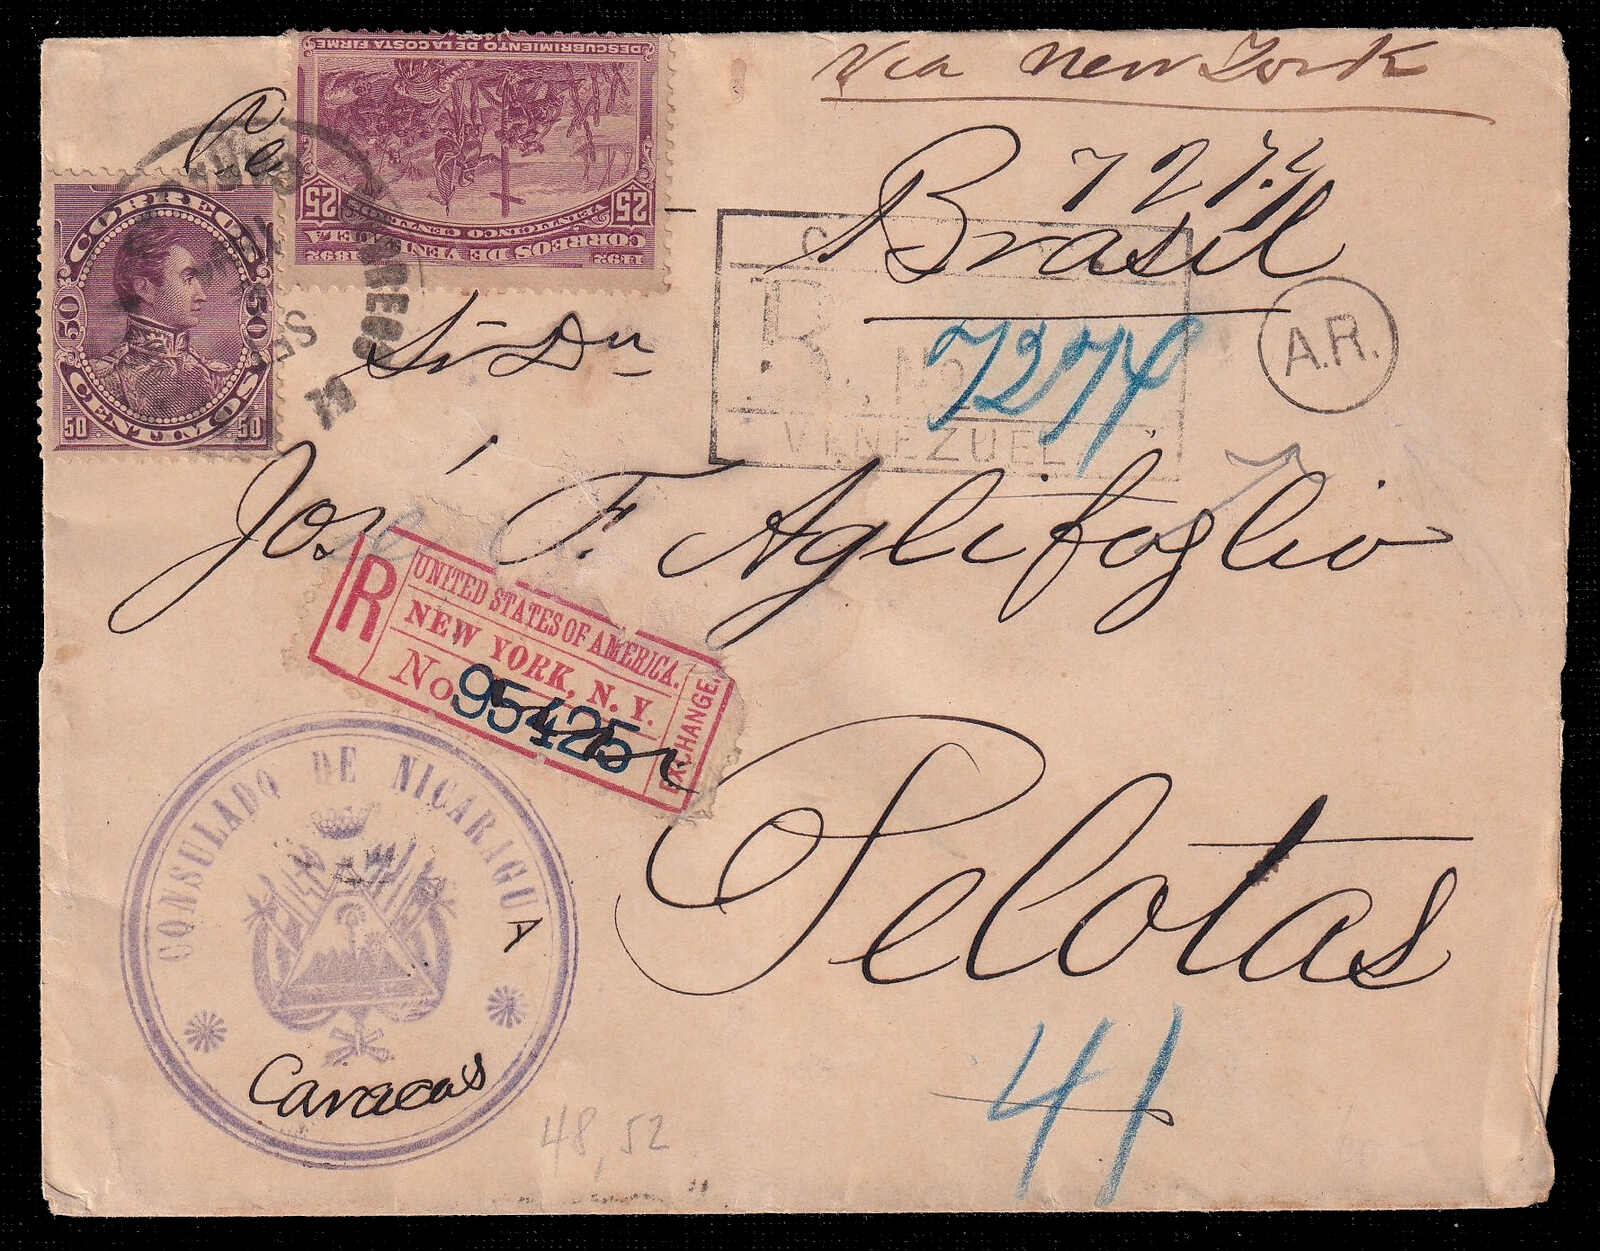 Via New York
DESCUBRIMIENTO DE LA COSTA FIRME
1498
25 25
VEINTICINCO CENTIMOS
CORREOS DE VENEZUELA
1492 1892
CORREOS
50 50
CENTIMOS
50 50
CORREOS
7274
Brasil
R. No
7274
VENEZUELA
A.R.
Sr Dn
José F. Aglifoglio
R
UNITED STATES OF AMERICA.
NEW YORK, N. Y.
No 95425
EXCHANGE.
Pelotas
CONSULADO DE NICARAGUA
Caracas
41
48,52